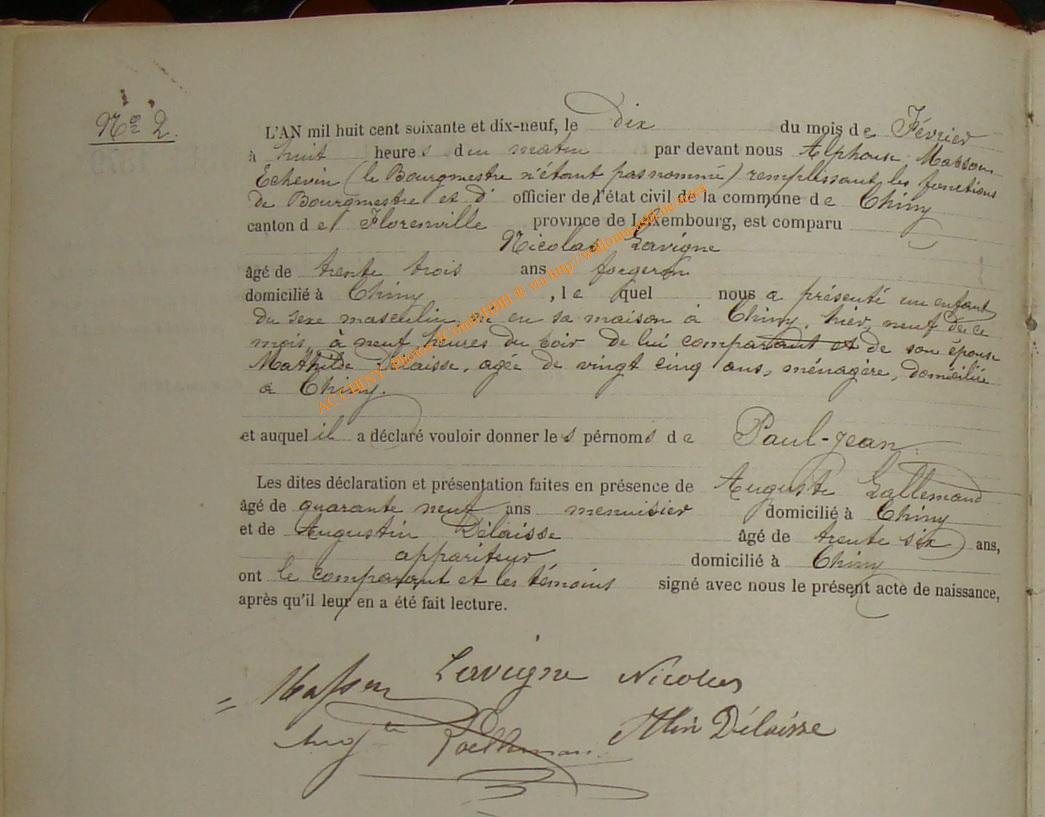 No 2.
L'AN mil huit cent soixante et dix-neuf, le dix du mois de Février
à huit heures du matin par devant nous Alphonse Masson
Echevin (le Bourgmestre n'étant pas nommé) remplissant les fonctions
de Bourgmestre et d' officier de l'état civil de la commune de Chiny
canton de Florenville province de Luxembourg, est comparu
Nicolas Lavigne
âgé de trente trois ans forgeron
domicilié à Chiny , le quel nous a présenté un enfant
du sexe masculin, né en sa maison à Chiny, hier, neuf de ce
mois, à neuf heures du soir de lui comparant et de son épouse
Mathilde Délaisse, agée de vingt cinq ans, ménagère, domiciliée
à Chiny.
et auquel il a déclaré vouloir donner les pérnoms de Paul-Jean.
Les dites déclaration et présentation faites en présence de Auguste Lallemand
âgé de quarante neuf ans menuisier domicilié à Chiny
et de Augustin Délaisse âgé de trente six ans,
appariteur domicilié à Chiny
ont le comparant et les témoins signé avec nous le présent acte de naissance,
après qu'il leur en a été fait lecture.
Masson Lavigne Nicolas
Augte Lallemand Atin Délaisse